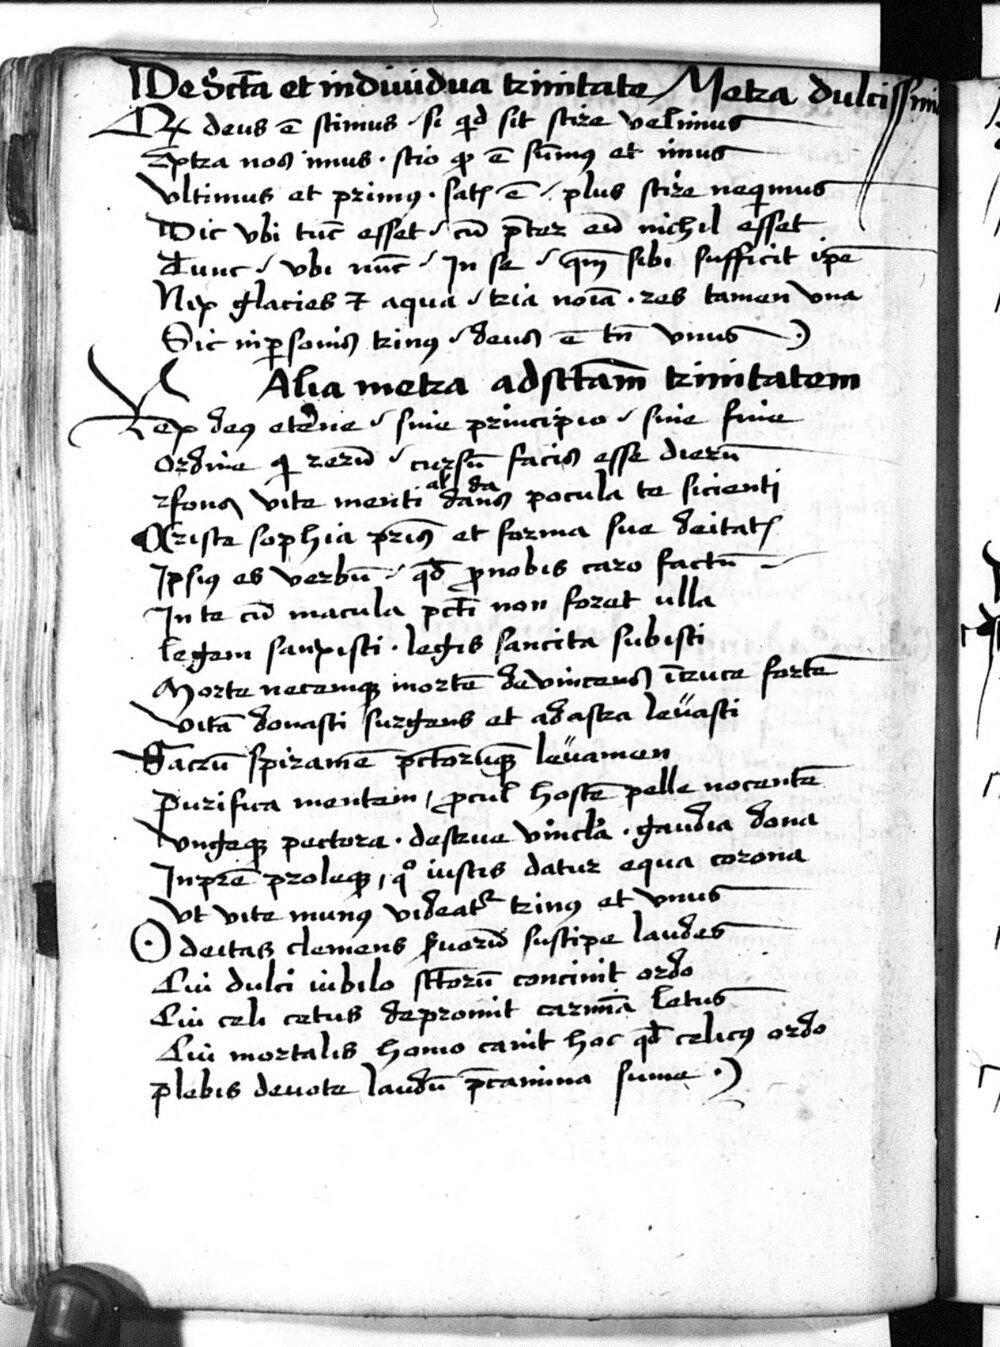 De Scta et indiuidua trinitate Metra dulcissimi
Qx deus ē scimus / si qd sit scire velimus
Extra nos imus · scio qp ē sūmus et imus
Vltimus et primus · satis ē / plus scire nequimus
Dic vbi tūc esset / cū pter eū nichil esset
Tunc / vbi nūc / In se / qm sibi sufficit ipē
Nix glacies et aqua / tria noīa · res tamen vna
Sic in personis trinus / deus ē tn vnus
Alia metra ad sctam trinitatem
Rex deus eterne / sine principio / sine fine
Ordine qui rerū / cursū facis esse dierū
al da
fons vite menti dans pocula te sicienti
Criste sophia pris et forma sue deitatis
Ipsius es verbū / qd pro nobis caro factū
In te cū macula pcti non foret ulla
legem sanxisti · legis sancita subisti
Morte necemque mortē devincens ī cruce fortē
Vitā donasti surgens et ad astra levasti
Sacrū spiramē pctorūque levamen
Purifica mentem / procul hostē pelle nocentē
Vngeque pectora · destrue vincla · gaudia dona
In prē proleque / qo iustis datur equa corona
Vt vite munus videatur trinus et vnus
O deitas clemens servorū suscipe laudes
Cui dulci iubilo sctorū concinit ordo
Cui celi cetus depromit carmīa letus
Cui mortalis homo canit hoc qd celicus ordo
plebis devote laudū pcamina sume